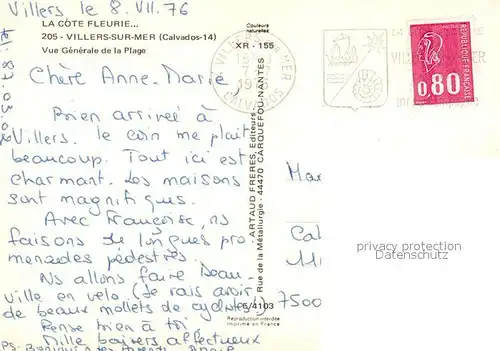 Villers le 8.VII.76
LA CÔTE FLEURIE...
205 - VILLERS-SUR-MER (Calvados-14)
Vue Générale de la Plage
Couleurs
naturelles
XR - 155
Chère Anne-Marie,
Bien arrivée à
Villers. le coin me plaît
beaucoup. Tout ici est
charmant. Les maisons
sont magnifiques.
Avec Françoise, ns
faisons de longues pro
menades pédestres.
Ns allons faire Deau-
ville en vélo (Je vais avoir
de beaux mollets de cyclistes!)
Pense bien à toi
Mille baisers affectueux
PS: Bonjour à tes
ARTAUD FRÈRES, Editeurs
Rue de la Métallurgie - 44470 CARQUEFOU-NANTES
6/4103
Reproduction interdite
Imprimé en France
CALVADOS
0,80
REPUBLIQUE FRANÇAISE
privacy protection
Datenschutz
7500